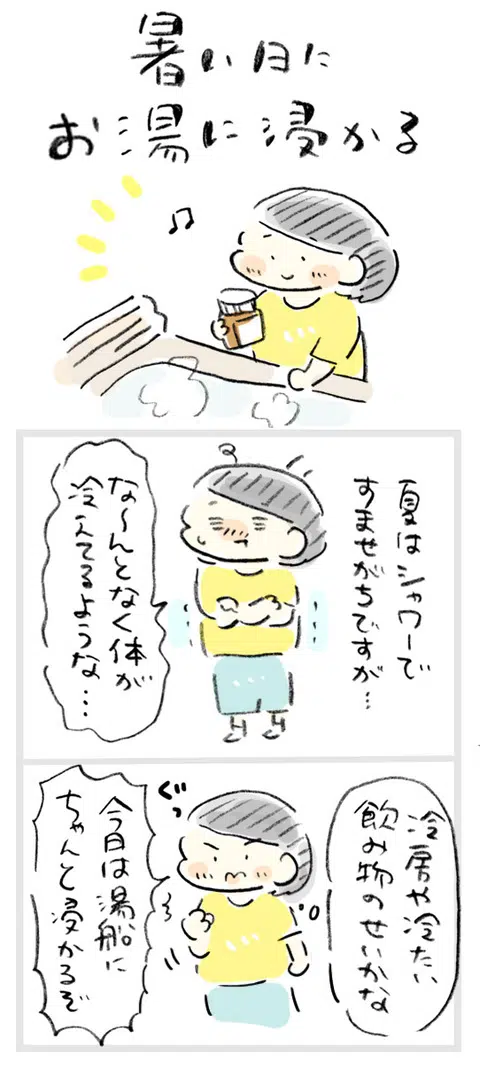 暑い日に
お湯に浸かる
夏はシャワーで
すませがちですが…
な〜んとなく体が
冷えてるような…
冷房や冷たい
飲み物のせいかな
ぐっ
今日は湯船に
ちゃんと浸かるぞ